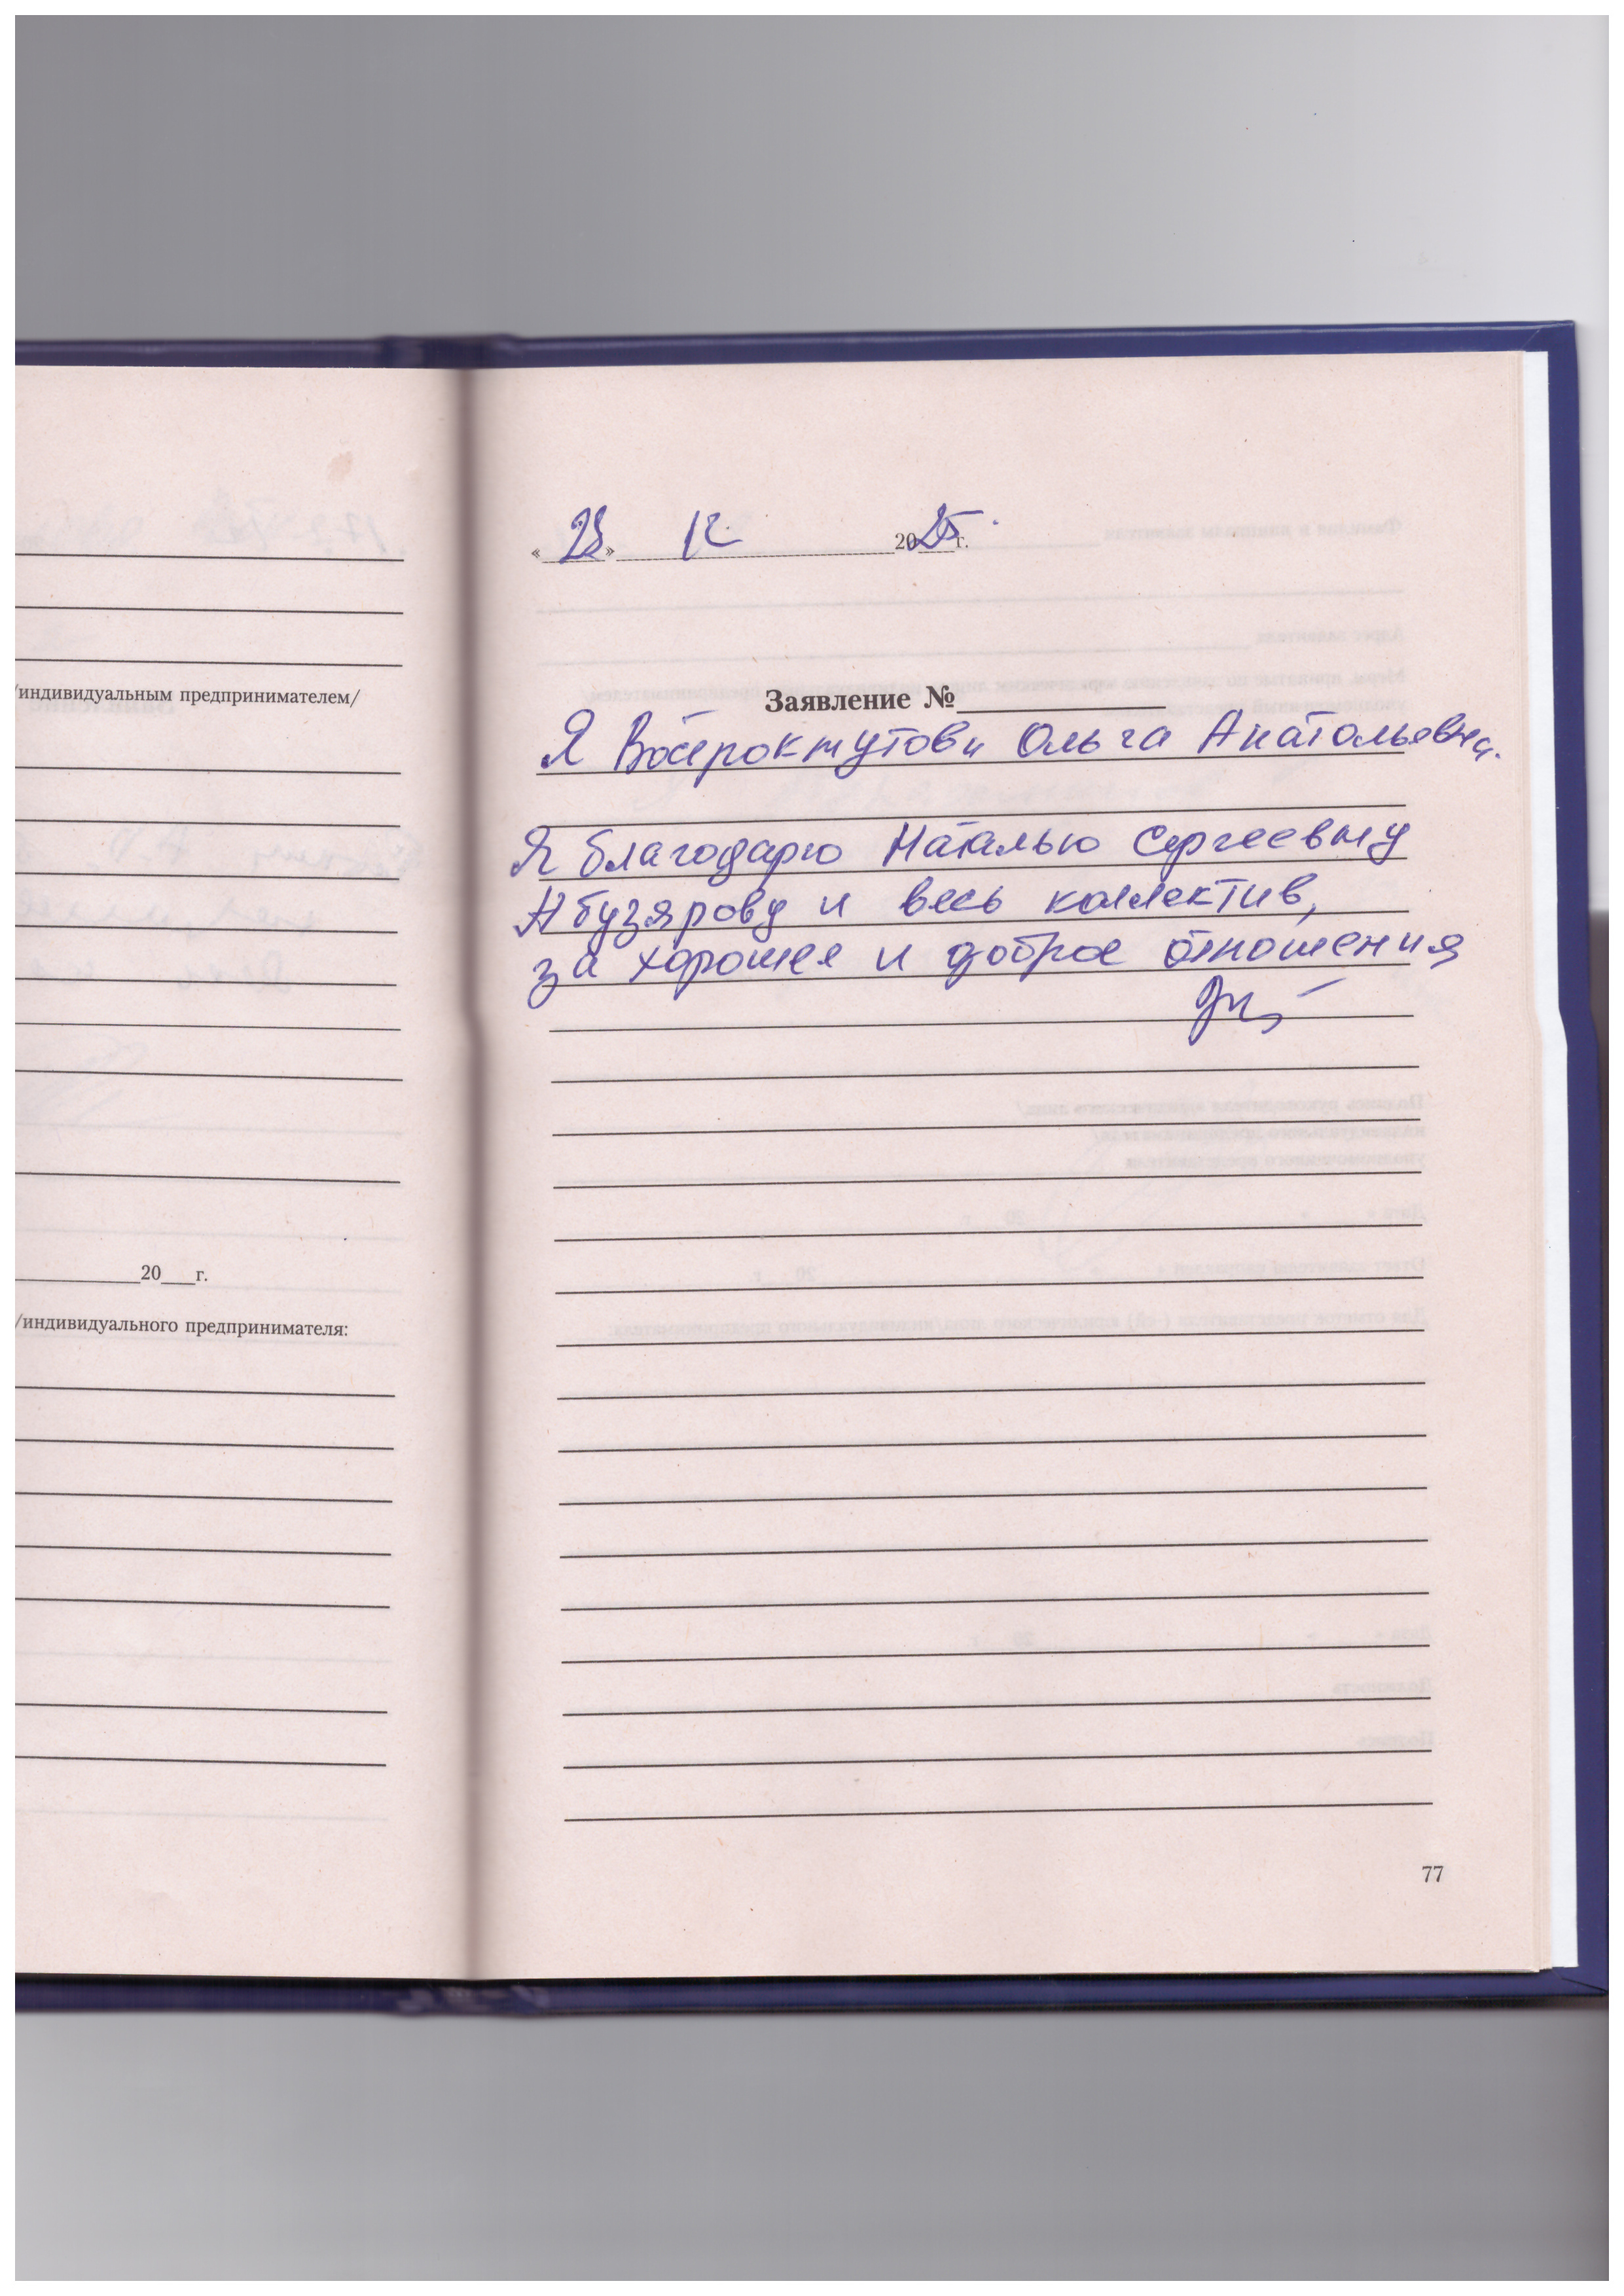 /индивидуальным предпринимателем/
20___г.
/индивидуального предпринимателя:
« 23 » 12 2025 г.
Заявление №
Я Ольга Анатольевна.
Я благодарю Наталью Сергеевну
Абузярову и весь коллектив,
за хорошея и доброе отношения
77